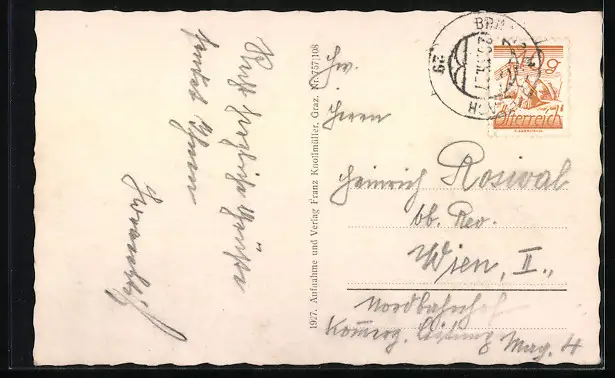 Viele herzliche Grüße
sendet Ihnen
1927. Aufnahme und Verlag Franz Knollmüller, Graz. Nr. 757/108
BRU
Österreich
Hw.
Herrn
Heinrich Rosival
bb. Rev.
Wien, II.,
Nordbahnhof
Mag. 4